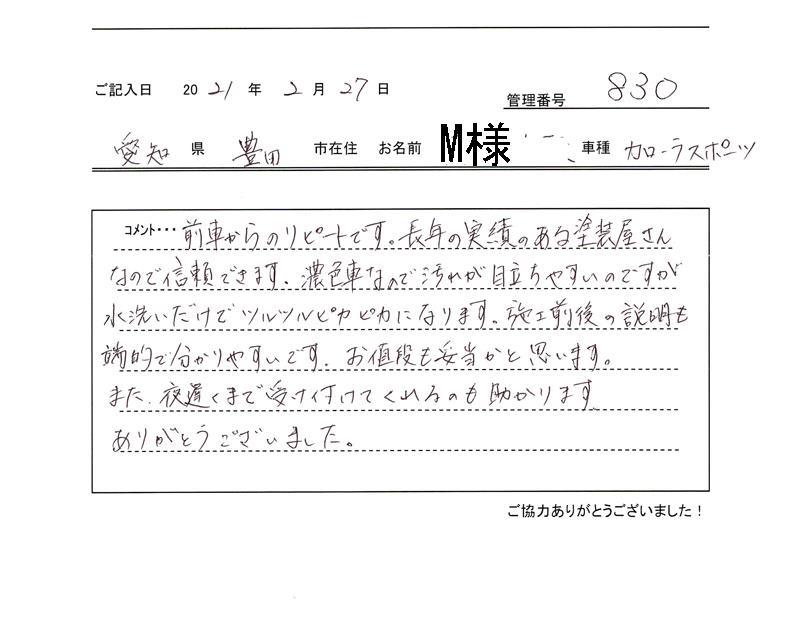 ご記入日 2021年 2月 27日
管理番号 830
愛知 県 豊田 市在住 お名前 M様 車種 カローラスポーツ
コメント・・・前車からのリピートです。長年の実績のある塗装屋さん
なので信頼できます、濃色車なので汚れが目立ちやすいのですが
水洗いだけでツルツルピカピカになります、施工前後の説明も
端的で分かりやすいです、お値段も妥当かと思います。
また、夜遅くまで受け付けてくれるのも助かります
ありがとうございました。
ご協力ありがとうございました!